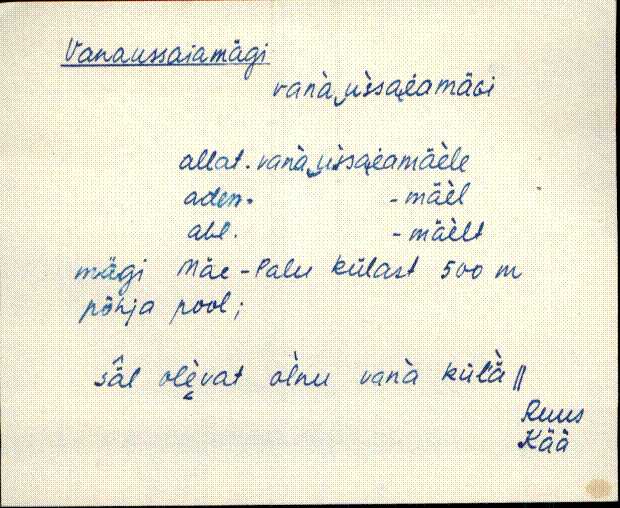 Vanaussaiamägi
vanà‿ùssai̯amäGi
allat. vanà‿ùssai̯amäèle
aden. -mäèl
abl. -mäèlt
mägi Mäe-Palu külast 500 m
põhja pool;
sâl olè̮vat òlnu vanà külà̈ ||
Ruus
Kää